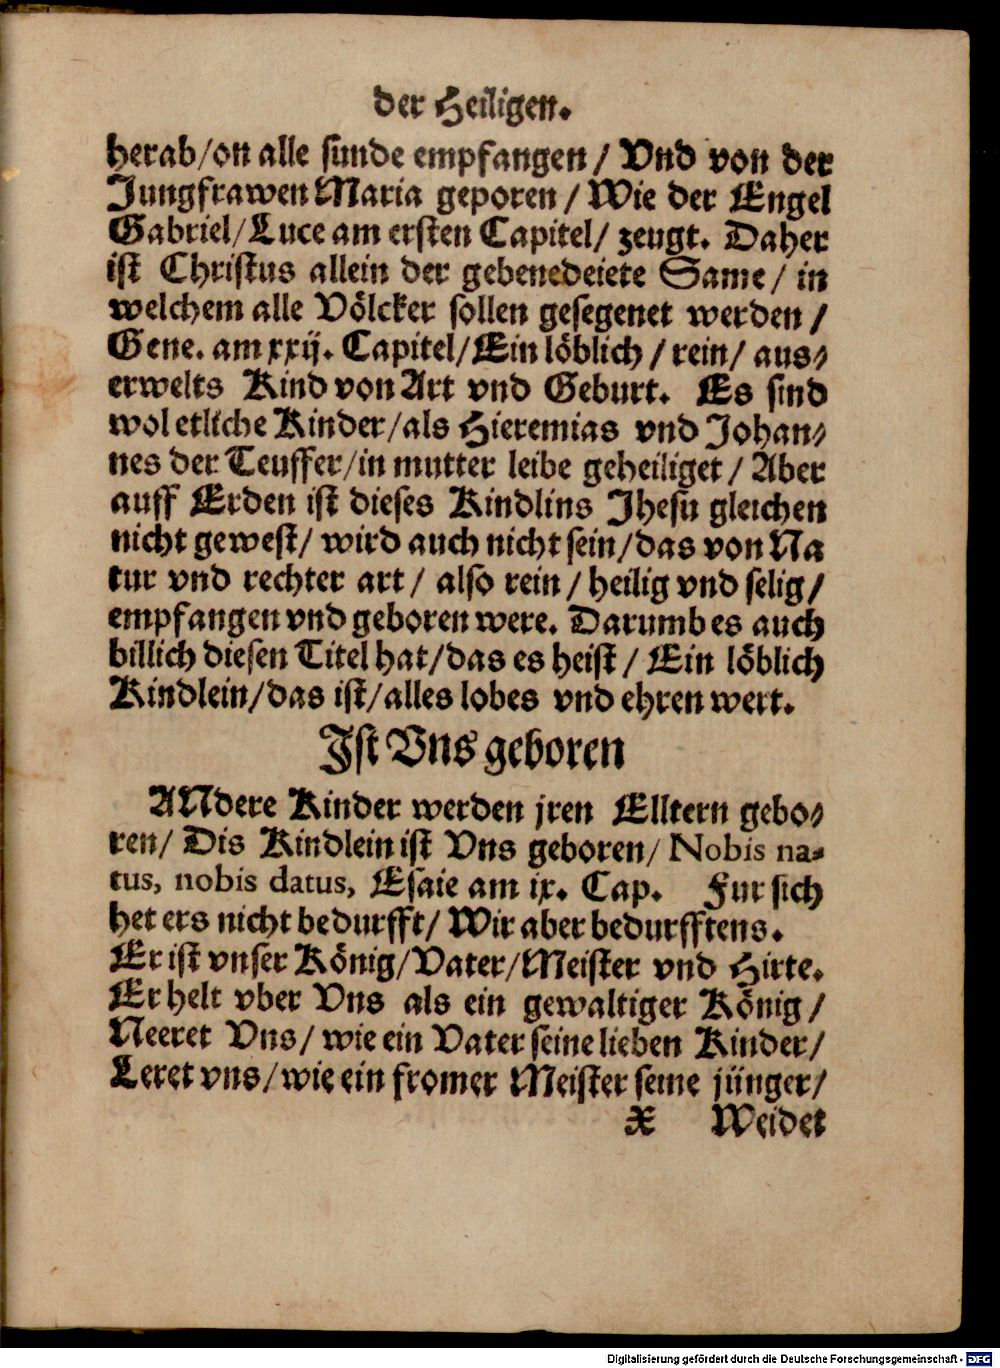 der Heiligen.
herab/on alle sunde empfangen / Vnd von der
Jungfrawen Maria geporen / Wie der Engel
Gabriel/ Luce am ersten Capitel/ zeugt. Daher
ist Christus allein der gebenedeiete Same / in
welchem alle Völcker sollen gesegenet werden /
Gene. am xxij. Capitel/ Ein löblich / rein/ aus⸗
erwelts Kind von Art vnd Geburt. Es sind
wol etliche Kinder/als Hieremias vnd Johan⸗
nes der Teuffer/in mutter leibe geheiliget / Aber
auff Erden ist dieses Kindlins Jhesu gleichen
nicht gewest/ wird auch nicht sein/das von Na
tur vnd rechter art/ also rein / heilig vnd selig/
empfangen vnd geboren were. Darumb es auch
billich diesen Titel hat/das es heist / Ein löblich
Kindlein/das ist/alles lobes vnd ehren wert.
Jst Vns geboren
ANdere Kinder werden jren Elltern gebo⸗
ren/ Dis Kindlein ist Vns geboren/ Nobis na⸗
tus, nobis datus, Esaie am ix. Cap. Fur sich
het ers nicht bedurfft/ Wir aber bedurfftens.
Er ist vnser König/Vater/Meister vnd Hirte.
Er helt vber Vns als ein gewaltiger König/
Neeret Vns/ wie ein Vater seine lieben Kinder/
Leret vns/wie ein fromer Meister seine jünger/
X Weidet
Digitalisierung gefördert durch die Deutsche Forschungsgemeinschaft - DFG